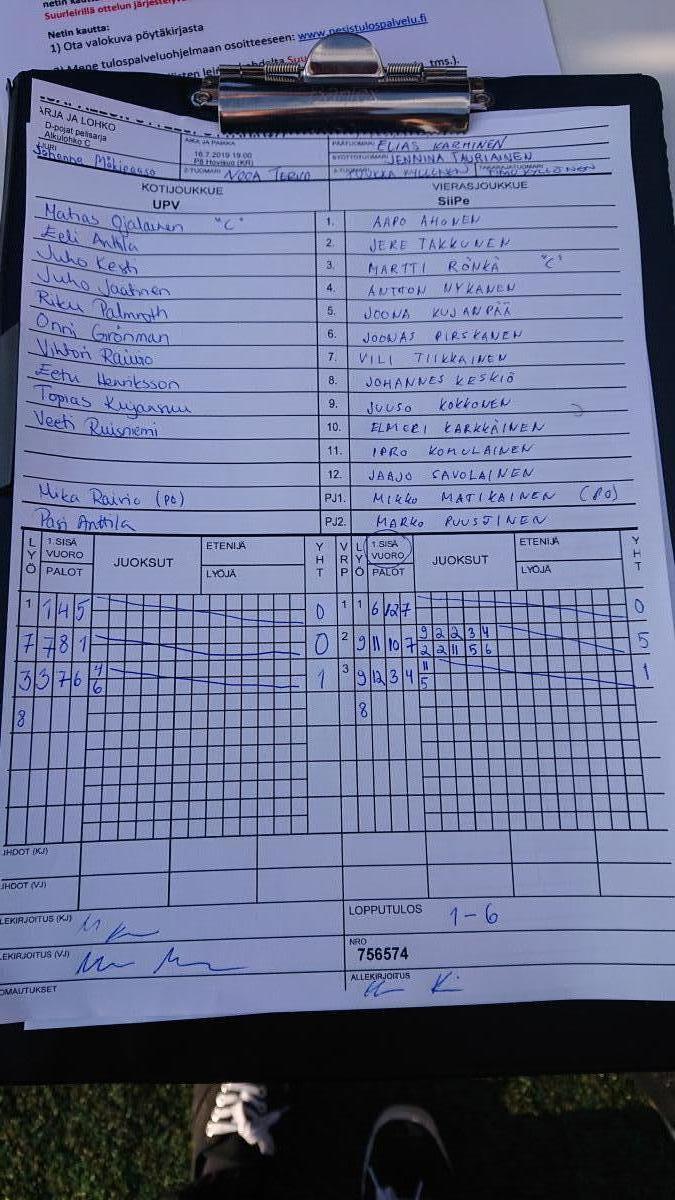 Suurleirillä ottelun
Netin kautta:
1) Ota valokuva pöytäkirjasta
2) Mene tulospalveluohjelmaan osoitteeseen: www.pesistulospalvelu.fi
tms.).
ARJA JA LOHKO
D-pojat pelisarja
Alkulohko C
AIKA JA PAIKKA
16.7.2019 19.00
PÄÄTUOMARI ELIAS KARMINEN
SYÖTTÖTUOMARI JENNINA TAURIAINEN
2-TUOMARI NOORA TERVO
TAKARAJATUOMARI TIMO KYLLÖNEN
KOTIJOUKKUE
UPV
VIERASJOUKKUE
SiiPe
Matias Ojalainen "C" 1. AAPO AHONEN
Eeli Anttila 2. JERE TAKKUNEN
Juho Kesti 3. MARTTI RÖNKÄ "C"
Juho Jaatinen 4. ANTTON NYKÄNEN
Riku Palmroth 5. JOONA KUJANPÄÄ
Onni Grönman 6. JOONAS PIRSKANEN
Vihtori Rairio 7. VILI TIIKKAINEN
Eetu Henriksson 8. JOHANNES KESKIÖ
Topias Kujansuu 9. JUUSO KOKKONEN
Veeti Ruisniemi 10. ELMERI KARKKÄINEN
11. IPRO KOMULAINEN
12. JAAJO SAVOLAINEN
Mika Rairio (PO) PJ1. MIKKO MATIKAINEN (PO)
Pasi Anttila PJ2. MARKO PUUSTINEN
LYÖ 1.SISÄ VUORO PALOT JUOKSUT ETENIJÄ LYÖJÄ YHT VRP LYÖ 1.SISÄ VUORO PALOT JUOKSUT ETENIJÄ LYÖJÄ YHT
1 1 4 5 0 1 1 6 12 7 0
7 7 8 1 0 2 9 11 10 7 9 2 2 3 4 5
2 2 11 5 6
3 3 7 6 4 1 3 9 12 3 4 11 1
6 5
8 8
JHDOT (KJ)
JHDOT (VJ)
LEKIRJOITUS (KJ)
LOPPUTULOS 1-6
LEKIRJOITUS (VJ)
NRO
756574
OMAUTUKSET
ALLEKIRJOITUS